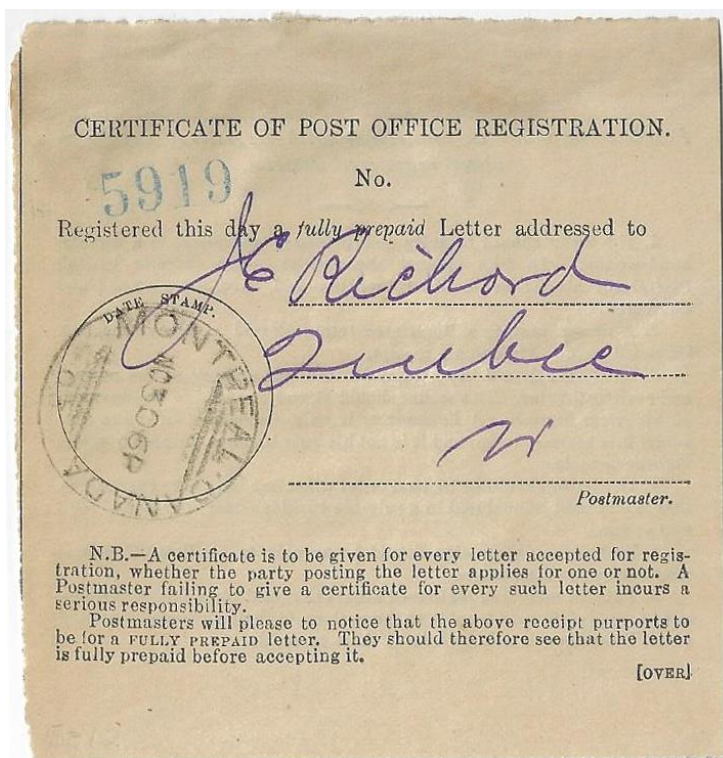 CERTIFICATE OF POST OFFICE REGISTRATION.
No.
5919
Registered this day a fully prepaid Letter addressed to
J E Richard
DATE STAMP.
MONTREAL CANADA
NO 30 6P
Quebec
Postmaster.
N.B.—A certificate is to be given for every letter accepted for regis-
tration, whether the party posting the letter applies for one or not. A
Postmaster failing to give a certificate for every such letter incurs a
serious responsibility.
Postmasters will please to notice that the above receipt purports to
be for a FULLY PREPAID letter. They should therefore see that the letter
is fully prepaid before accepting it.
[OVER]